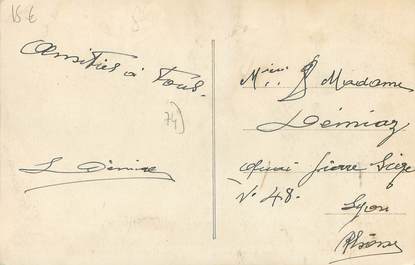 15 €
Amitiés à Tous.
74
Madame
Démiaz
Quai Pierre Scize
N° 48.
Lyon
Rhône